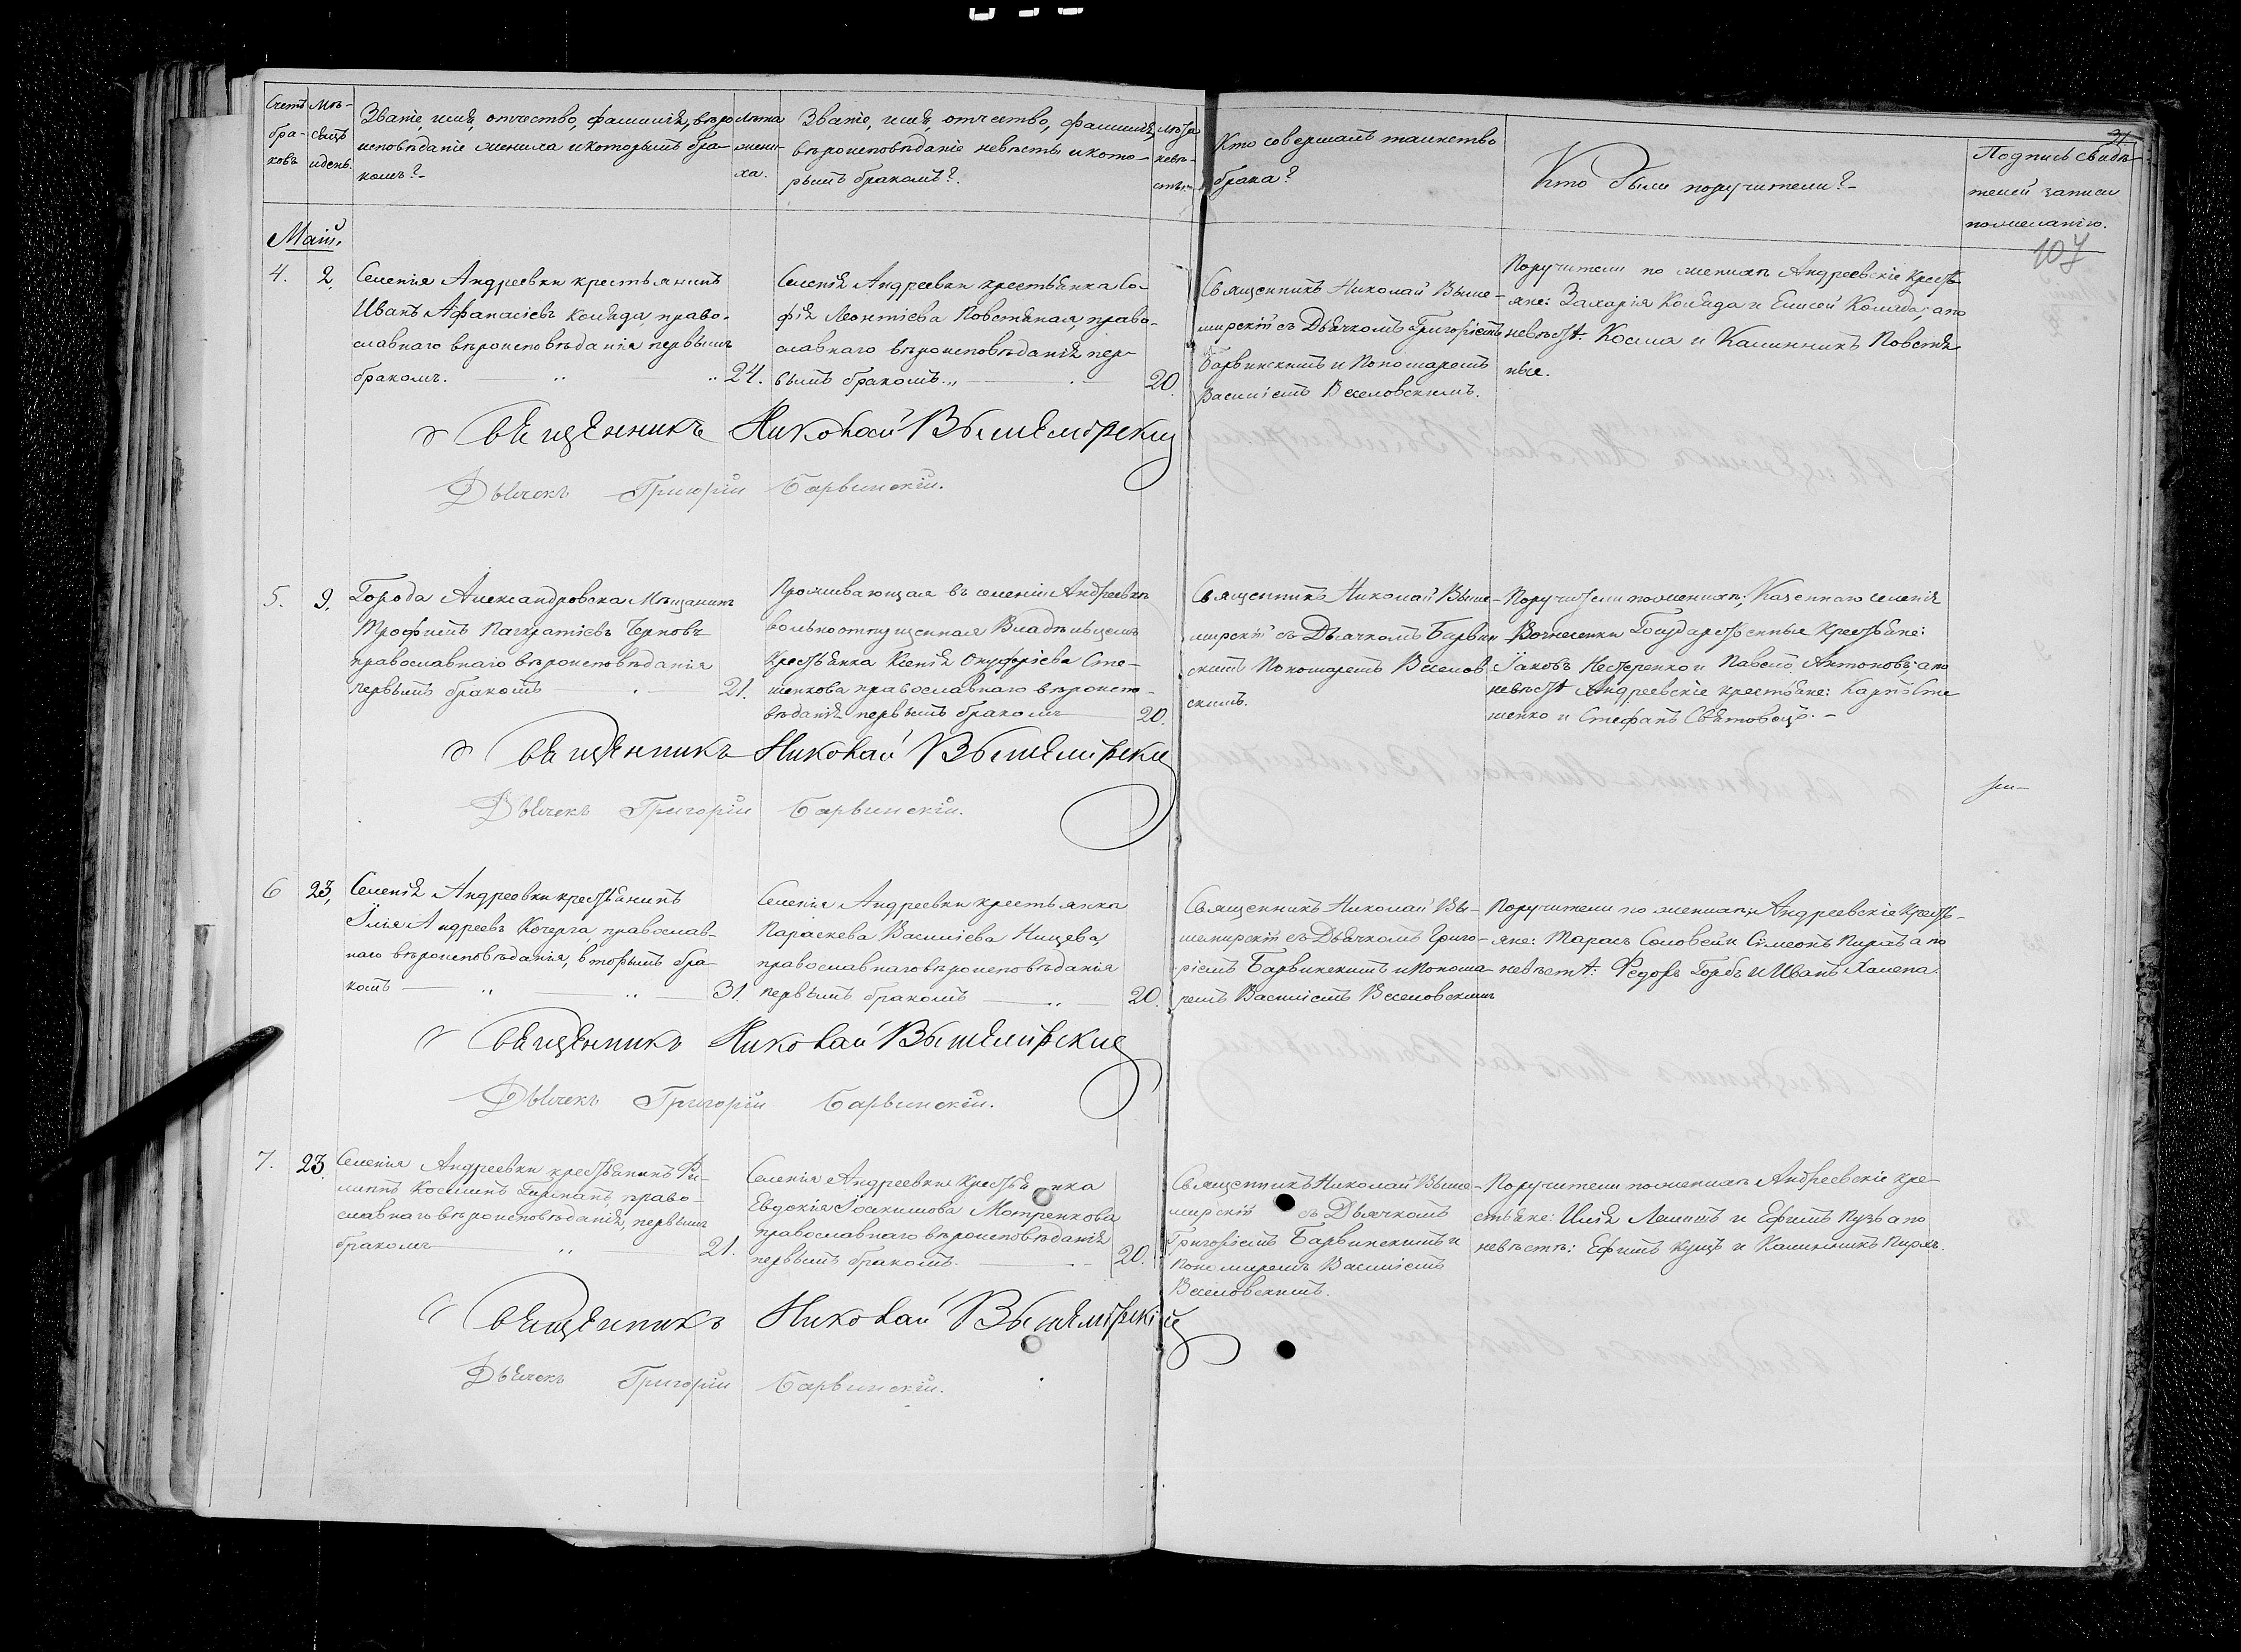 Счетъ бра-ковъ
Мѣ-сяцъ и день.
Званіе, имя, отчество, фамилія, вѣро
исповѣданіе жениха и которымъ бра-
комъ?-
Лѣта жени-ха.
Званіе, имя, отчество, фамилія,
вѣроисповѣданіе невѣсты и кото-
рымъ бракомъ?.
Лѣта невѣ-сты.
Кто совершалъ таинство
брака?
Кто были поручители?-
Подпись свидѣ-
телей записи
по желанію.
107
Маій.
4. 2.
Селенія Андреевки крестьянинъ
Иванъ Афанасіевъ Коляда, право-
славнаго вѣроисповѣданія первымъ
бракомъ. 24.
Селенія Андреевки крестьянка Со-
фія Леонтіева Повстяная, право-
славнаго вѣроисповѣданія пер-
вымъ бракомъ. 20.
Священникъ Николай Выше-
мирскій съ Дьячкомъ Григоріемъ
Барвинскимъ и Пономаремъ
Василіемъ Веселовскимъ.
Поручители по женихѣ Андреевскіе кресть-
яне: Захарія Коляда и Елисей Коляда; а по
невѣстѣ: Косма и Калинникъ Повстя
ные.
Священникъ Николай Вышемірскій
Дьячекъ Григорій Барвинскій.
5. 9.
Города Александровска Мѣщанинъ
Трофимъ Панкратіевъ Черновъ
православнаго вѣроисповѣданія
первымъ бракомъ 21.
Проживающая въ селеніи Андреевкѣ
вольноотпущенная Владѣльцемъ
крестьянка Ксенія Онуфріева Сте-
шенкова православнаго вѣроиспо-
вѣданія первымъ бракомъ 20.
Священникъ Николай Выше-
мирскій съ Дьячкомъ Барвин
скимъ Пономаремъ Веселов
скимъ.
Поручители по женихѣ; Казеннаго селенія
Вознесенки Государственные крестьяне:
Іаковъ Нестеренко и Павелъ Антоновъ; а по
невѣстѣ Андреевскіе крестьяне: Карпъ Сте
шенко и Стефанъ Святовецъ.-
Священникъ Николай Вышемірскій
Дьячекъ Григорій Барвинскій.
6 23,
Селенія Андреевки крестьянинъ
Илія Андреевъ Кочерга, православ-
наго вѣроисповѣданія, вторымъ бра-
комъ 31.
Селенія Андреевки крестьянка
Параскева Василіева Нищева,
православнаго вѣроисповѣданія
первымъ бракомъ 20.
Священникъ Николай Вы-
шемирскій съ Дьячкомъ Григо-
ріемъ Барвинскимъ и Понома-
ремъ Василіемъ Веселовскимъ
Поручители по женихѣ; Андреевскіе кресть-
яне: Тарасъ Соловей и Сімеонъ Пирхъ а по
невѣстѣ: Федоръ Горбъ и Иванъ Халепа.
Священникъ Николай Вышемірскій
Дьячекъ Григорій Барвинскій.
7. 23.
Селенія Андреевки крестьянинъ Фи-
липпъ Косминъ Гирманъ, право-
славнаго вѣроисповѣданія, первымъ
бракомъ 21.
Селенія Андреевки крестьянка
Евдокія Іоакимова Мотренкова
православнаго вѣроисповѣданія
первымъ бракомъ. 20.
Священникъ Николай Выше-
мирскій съ Дьячкомъ
Григоріемъ Барвинскимъ и
Пономаремъ Василіемъ
Веселовскимъ.
Поручители по женихѣ Андреевскіе кре-
стьяне: Илія Лемишъ и Ефимъ Пузь а по
невѣстѣ: Ефимъ Куцъ и Калинникъ Пирхъ.
Священникъ Николай Вышемірскій
Дьячекъ Григорій Барвинскій.